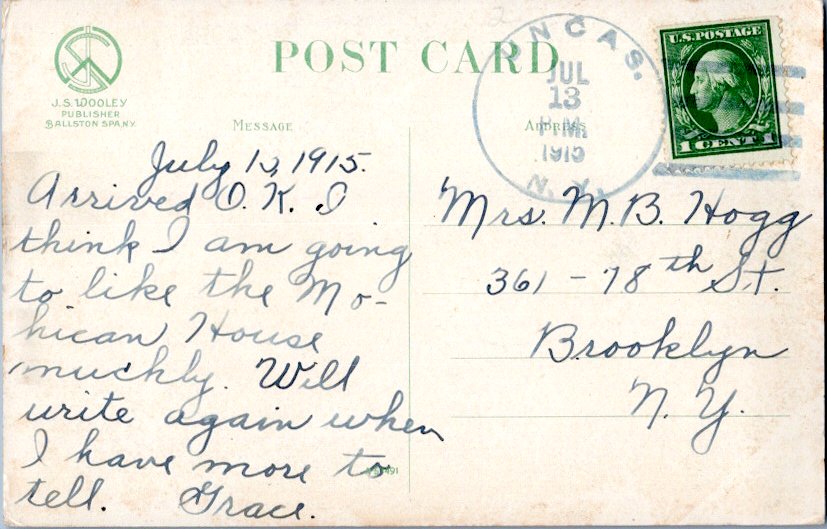 POST CARD
J.S. WOOLEY
PUBLISHER
BALLSTON SPA N.Y.
MESSAGE
ADDRESS
UNCAS.
JUL
13
P.M.
1915
N.Y.
U.S. POSTAGE
1 CENT 1
July 13, 1915.
Arrived O. K. I
think I am going
to like the Mo-
hican House
muchly. Will
write again when
I have more to
tell. Grace.
Mrs. M. B. Hogg
361 - 78th St.
Brooklyn
N. Y.